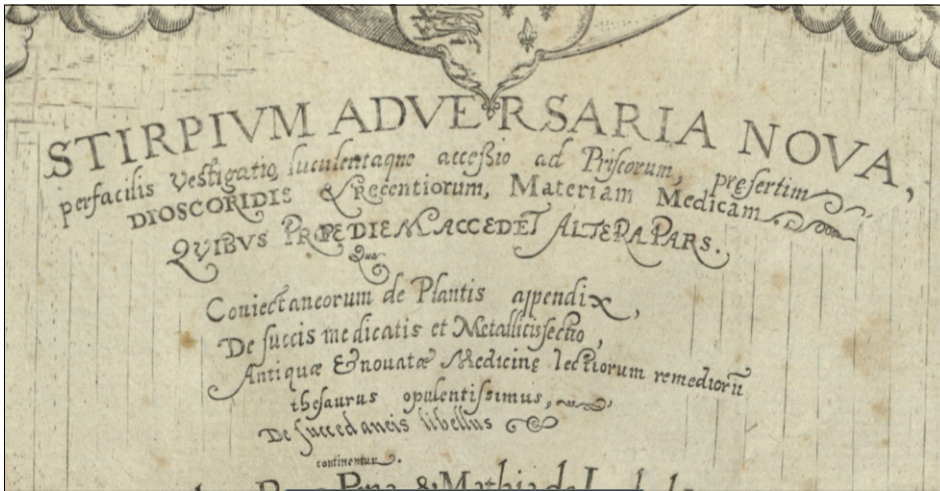 STIRPIVM ADVERSARIA NOVA,
perfacilis vestigatio, luculentaque acceßio ad Priscorum, pręsertim
DIOSCORIDIS & Recentiorum, Materiam Medicam
QVIBVS PROPEDIEM ACCEDET ALTERA PARS.
Qua
Coniectaneorum de Plantis appendix,
De succis medicatis et Metallicis sectio,
Antiquæ & novatæ Medicinę lectiorum remediorū
thesaurus opulentissimus,
De succedaneis libellus
continentur.
Pena, & Mathia de